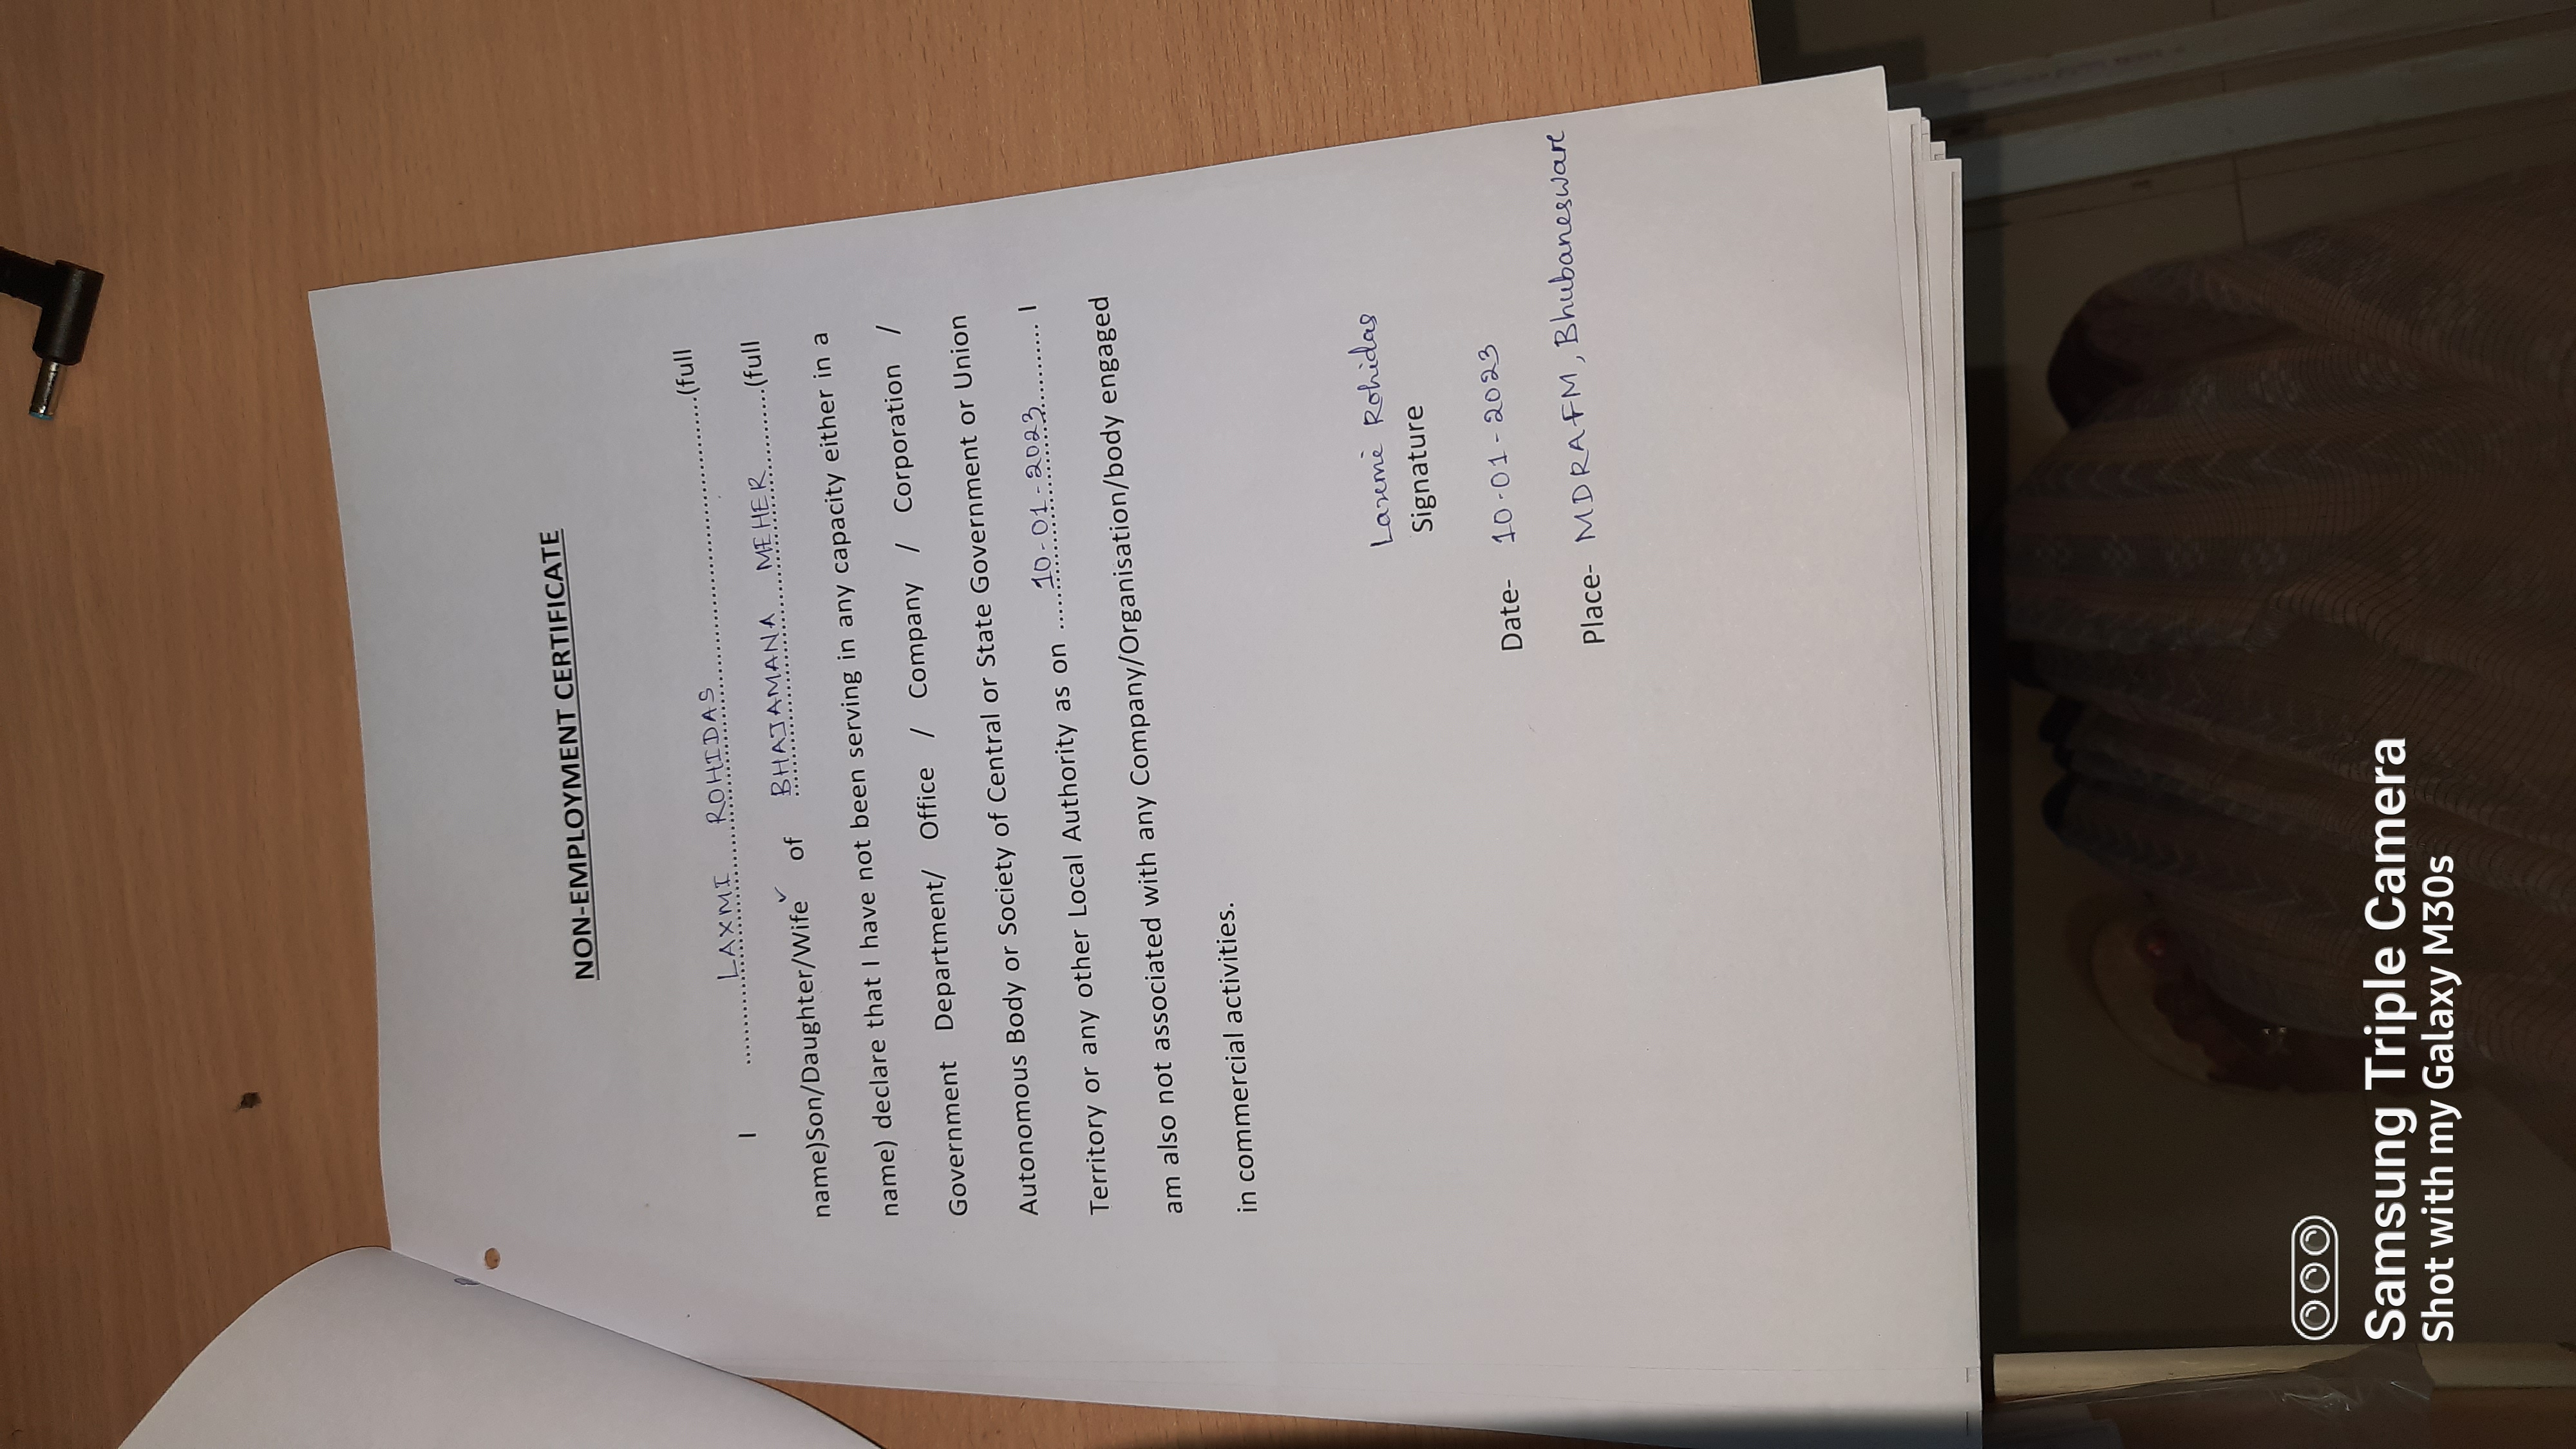 NON-EMPLOYMENT CERTIFICATE
I ........LAXMI ROHIDAS........(full
name)Son/Daughter/Wife✓ of BHAJAMANA MEHER........(full
name) declare that I have not been serving in any capacity either in a
Government Department/ Office / Company / Corporation /
Autonomous Body or Society of Central or State Government or Union
Territory or any other Local Authority as on ......10-01-2023........ I
am also not associated with any Company/Organisation/body engaged
in commercial activities.
Laxmi Rohidas
Signature
Date- 10-01-2023
Place- MDRAFM, Bhubaneswar
Samsung Triple Camera
Shot with my Galaxy M30s